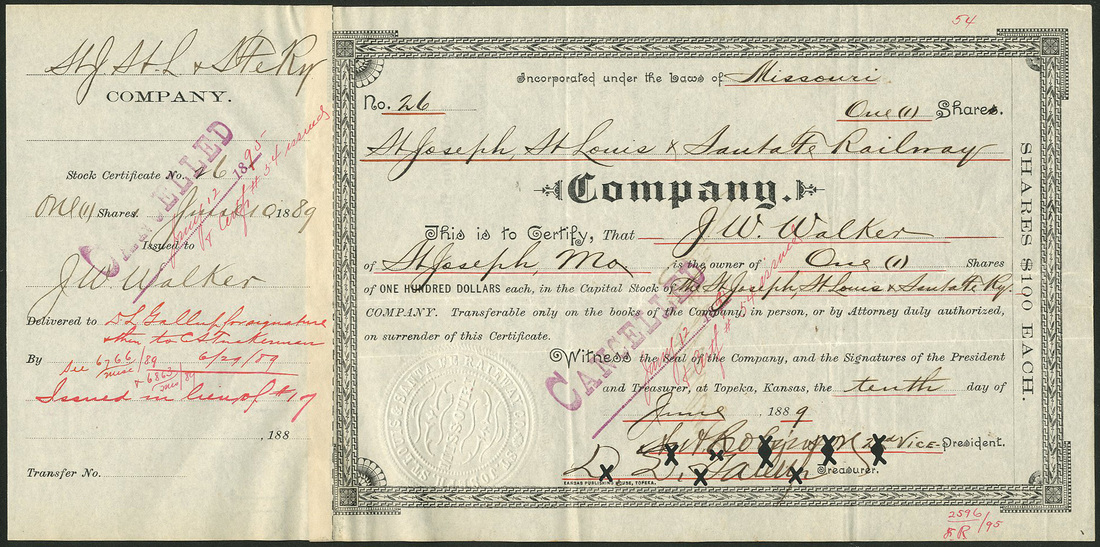 St J. St. L & S Fe Ry
COMPANY.
CANCELLED
June 12 1895
& Certf # 54 issued
Stock Certificate No. 26
One (1) Shares. June 10 1889
Issued to
J W Walker
Delivered to D L Gallup for signature
then to C S Tuckerman
By 6/29/89
See 6766/89
misc
& 6863/89
misc
Issued in lieu of # 17
, 188
Transfer No.
54
Incorporated under the Laws of Missouri
No. 26 One (1) Shares.
St Joseph, St Louis & Santa Fe Railway
Company.
This is to Certify, That J. W. Walker
of St Joseph, Mo is the owner of One (1) Shares
of ONE HUNDRED DOLLARS each, in the Capital Stock of the St Joseph, St Louis & Santa Fe Ry.
COMPANY. Transferable only on the books of the Company, in person, or by Attorney duly authorized,
on surrender of this Certificate.
Witness the Seal of the Company, and the Signatures of the President
and Treasurer, at Topeka, Kansas, the tenth day of
June 1889
CANCELLED
June 12 1895
& Certf # 54 issued
2nd VICE-President.
Treasurer.
KANSAS PUBLISHING HOUSE, TOPEKA.
SHARES $100 EACH.
2596/95
F.R